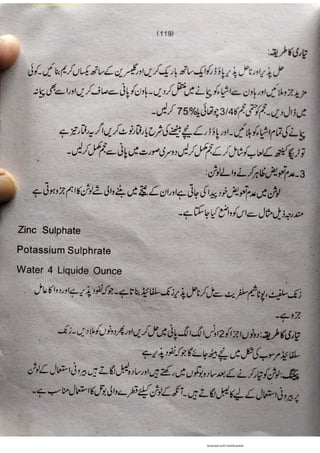 (119)
تیاری کا طریقہ:
حل پذیر اور ناحل پذیر پاؤڈر کو ایک ساتھ باریک کریں اور گلیسرین کے ساتھ یکساں کریم بنائیں۔ کوئی
مزید جزو ملائیں اور ہاون سے اشیاء کو پیمانے میں منتقل کر دیں۔ ہاون کو پانی سے صاف کریں اور اسے بھی پیمانہ
میں ڈال دیں۔ حجم کو حتمی حجم کا 3/4 چوتھائی یا 75% کر لیں۔
پیمانے کی تمام اشیاء کو ملائیں۔ اور پاؤڈر کے نیچے بیٹھنے کی شرح یا رفتار نوٹ کریں اگر یہ رفتار تیز ہے
تو ٹریگا کینتھ کے لعاب کو شامل کر کے حجم مکمل کر لیں دوسری صورت میں پانی سے حجم مکمل کر لیں۔
3۔ عدم تعویض ظاہر کرنے والے لوشن:
لوشن میں عدم تعویض خود پیدا کی جاتی ہے اور ان کے نتیجے میں بننے والی شے لوشن کا اہم جزو ہوتی ہے
مندرجہ ذیل مثال سے اس کو واضع کیا جا سکتا ہے۔
Zinc Sulphate
Potassium Sulphrate
Water 4 Liquide Ounce
زنک سلفیٹ، پوٹاشیم سلفریٹ سے مل کر ناحل پذیر زنک سلفائیڈ بناتا ہے۔ جو کہ نفوذ پذیر ہے اور دوا کا عامل
جزو ہے۔
تیاری کا طریقہ: دونوں اجزا کو 2 اونس الگ الگ پانی میں حل کریں اور پھر دونوں کو ملا دیں۔ زنک
سلفائیڈ مرسوب کی شکل میں نیچے بیٹھ جائے گا جو کہ نفوذ پذیر ہے
پیکنگ: لوشن کو تیار کرنے کے بعد سادہ بوتلوں میں رکھتے ہیں اور سادہ لیبل لگاتے ہیں بیرونی استعمال کے لوشن
پر بیرونی استعمال کے لیے کا لیبل لگاتے ہیں۔ آنکھ کے لوشن کیلئے قطرے والی بوتل کا استعمال مناسب ہے۔